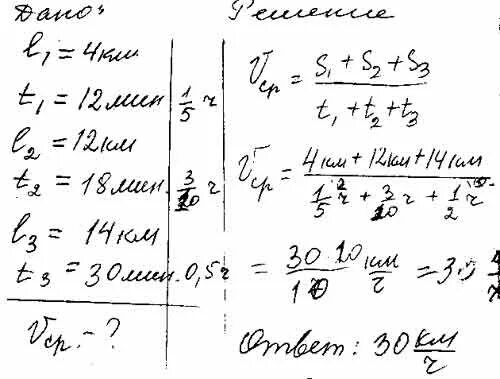 Дано: Решение
l₁ = 4км
t₁ = 12мин 1/5 ч
l₂ = 12км
t₂ = 18мин. 3/10 ч
l₃ = 14км
t₃ = 30мин. 0,5ч
Vср. - ?
Vср = (S₁ + S₂ + S₃) / (t₁ + t₂ + t₃)
Vср = (4км + 12км + 14км) / (1/5 ч + 3/10 ч + 1/2 ч)
= 30 10 / 10 км/г = 30
Ответ: 30 км/ч